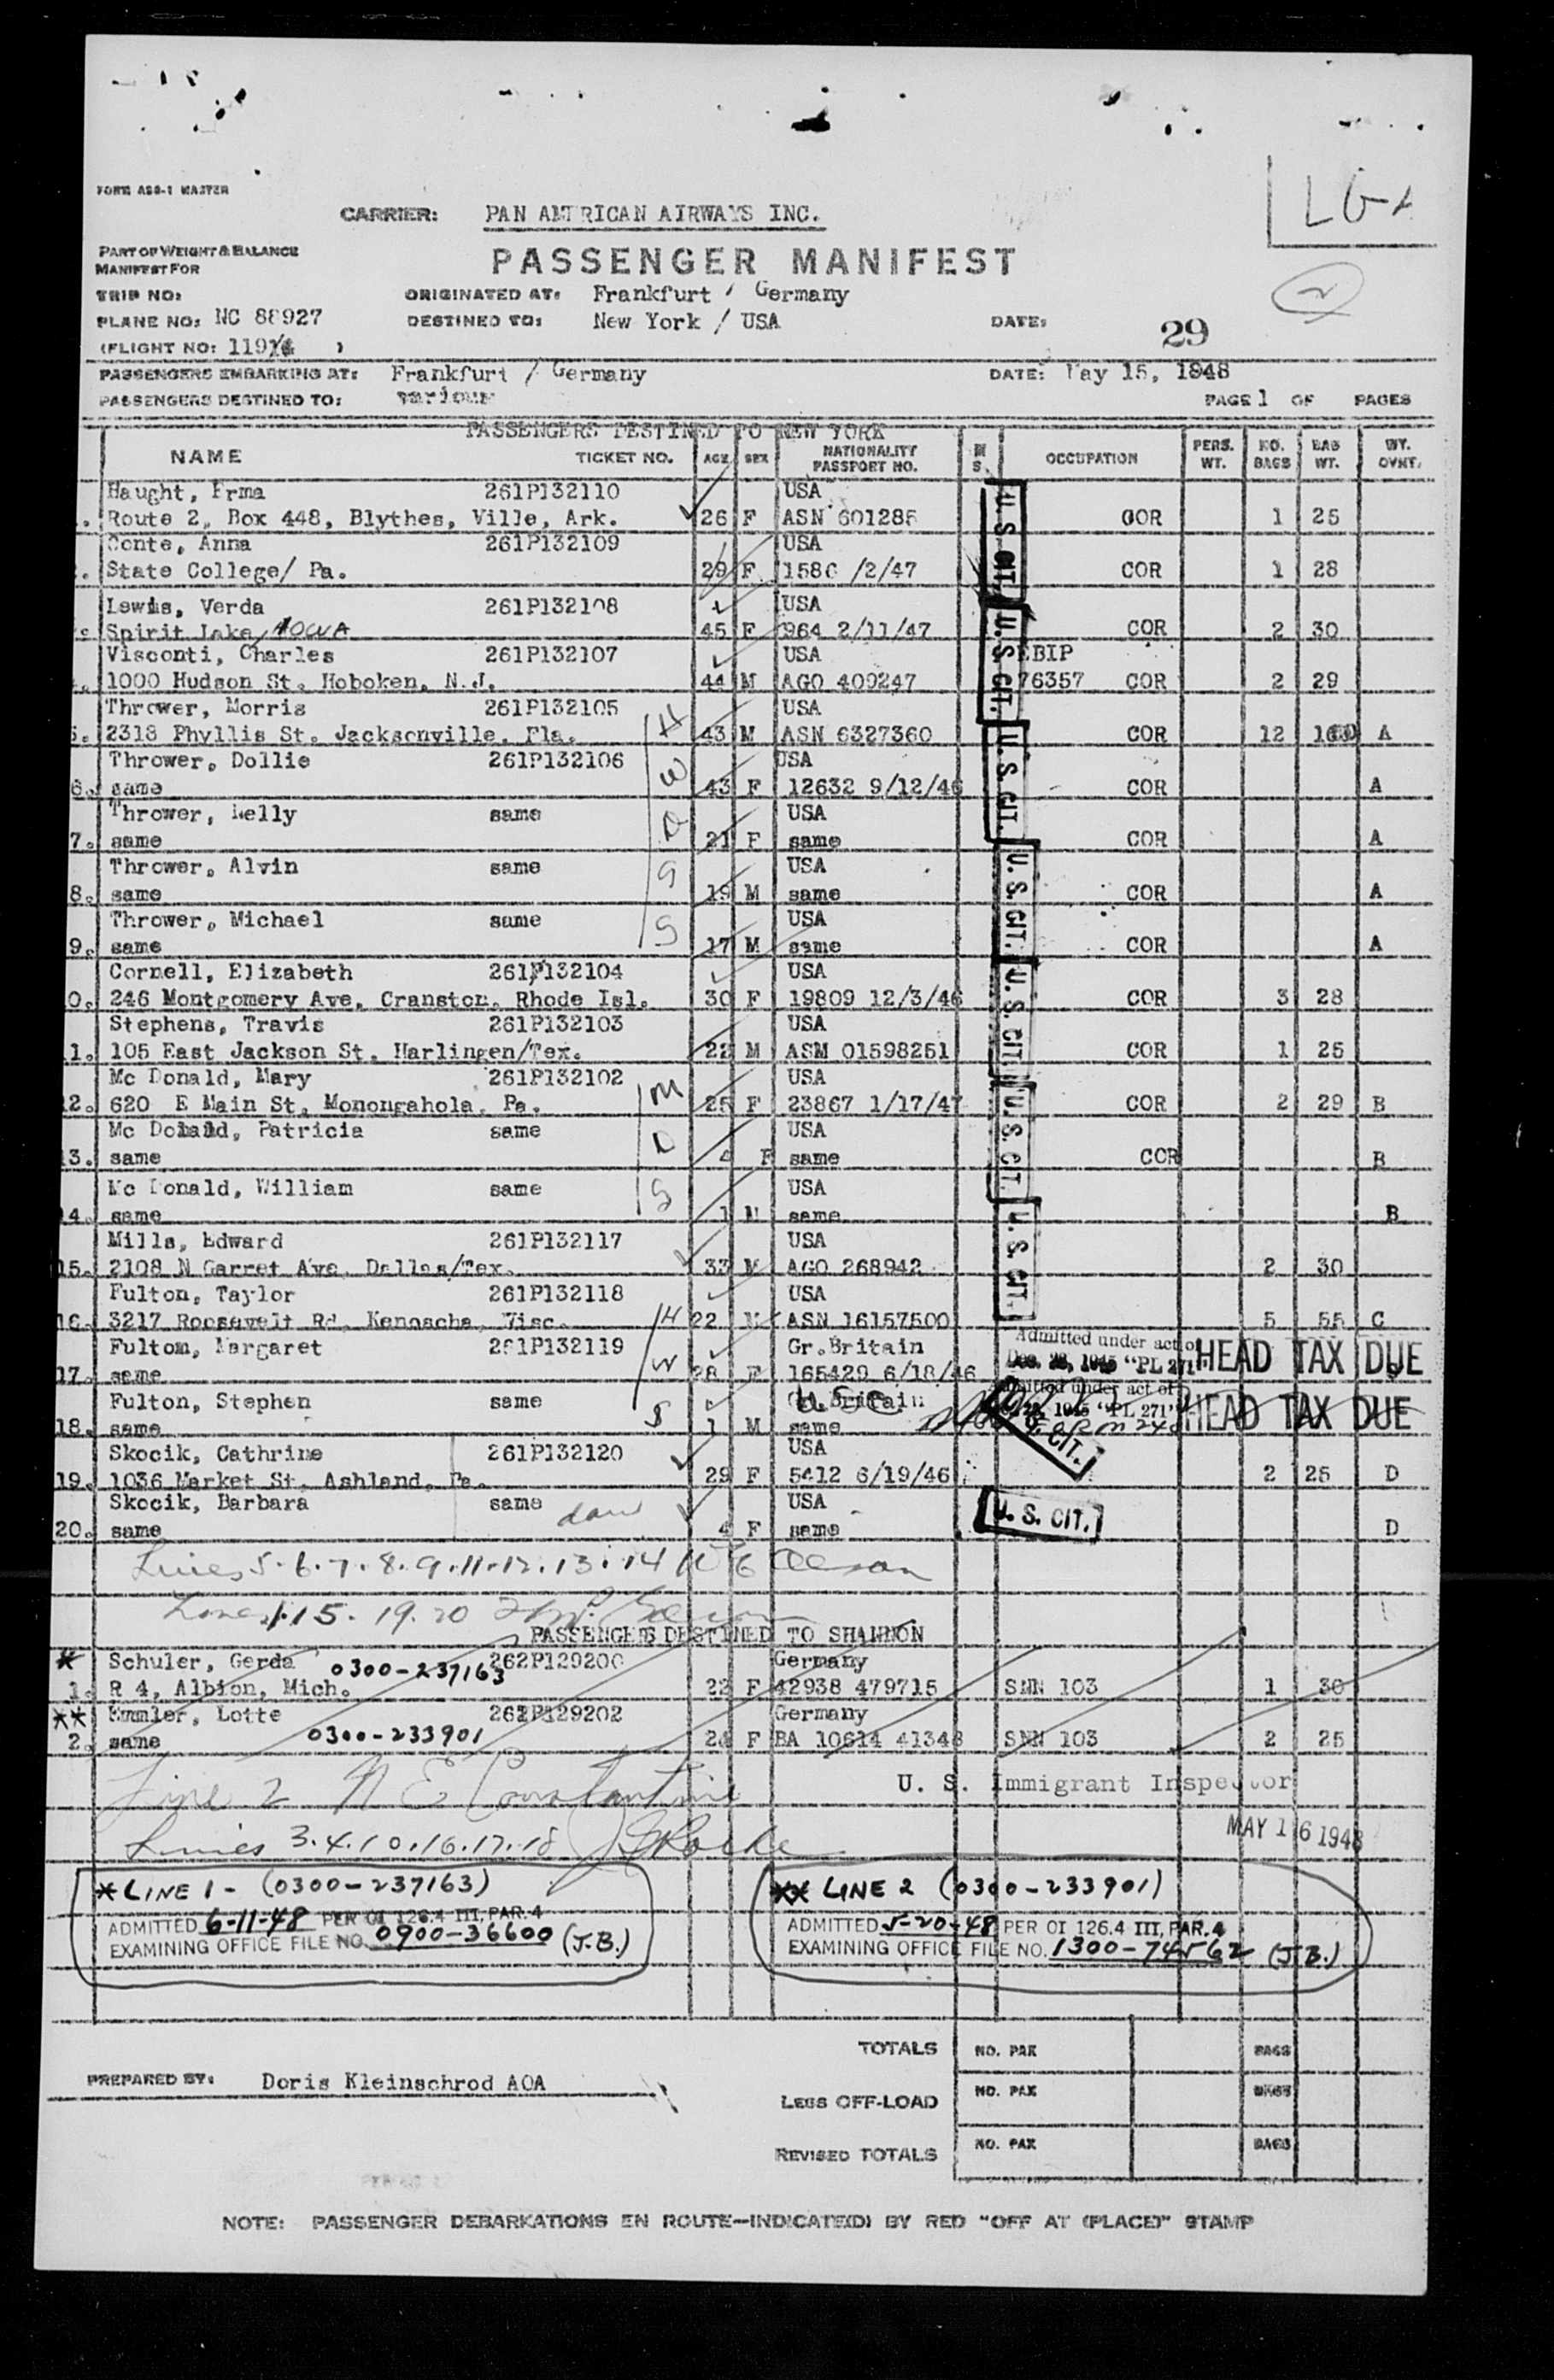 FORM ASS-1 MASTER
LG-
CARRIER: PAN AMERICAN AIRWAYS INC.
PART OF WEIGHT & BALANCE
MANIFEST FOR
PASSENGER MANIFEST
2
TRIP NO:
ORIGINATED AT: Frankfurt / Germany
PLANE NO: NC 88927
DESTINED TO: New York / USA
DATE: 29
(FLIGHT NO: 119 )
PASSENGERS EMBARKING AT: Frankfurt / Germany
DATE: May 15, 1948
PASSENGERS DESTINED TO: various
PAGE 1 OF PAGES
PASSENGERS DESTINED TO NEW YORK
NAME TICKET NO. AGE SEX NATIONALITY PASSPORT NO. M S. OCCUPATION PERS. WT. NO. BAGS BAG WT. WT. OVNT.
Haught, Erma 261P132110 USA
1. Route 2, Box 448, Blythes, Ville, Ark. 26 F ASN 601285 COR 1 25
Conte, Anna 261P132109 USA
2. State College/ Pa. 29 F 1580 /2/47 COR 1 28
Lewis, Verda 261P132108 USA
Spirit Lake, IOWA 45 F 964 2/11/47 COR 2 30
Visconti, Charles 261P132107 USA EBIP
4. 1000 Hudson St. Hoboken, N.J. 44 M AGO 409247 76357 COR 2 29
Thrower, Morris 261P132105 H USA
5. 2318 Phyllis St. Jacksonville, Fla. 43 M ASN 6327360 COR 12 A
Thrower, Dollie 261P132106 W USA
6. same 43 F 12632 9/12/46 COR A
Thrower, Nelly same D USA
7. same 21 F same COR A
Thrower, Alvin same S USA
8. same 19 M same COR A
Thrower, Michael same S USA
9. same 17 M same COR A
Cornell, Elizabeth 261P132104 USA
0. 246 Montgomery Ave, Cranston, Rhode Isl. 30 F 19809 12/3/46 COR 3 28
Stephens, Travis 261P132103 USA
1. 105 East Jackson St. Harlingen/Tex. 22 M ASM 01598251 COR 1 25
Mc Donald, Mary 261P132102 M USA
2. 620 E Main St. Monongahola, Pa. 25 F 23867 1/17/47 COR 2 29 B
Mc Donald, Patricia same D USA
3. same 4 F same COR B
Mc Donald, William same S USA
4. same 1 M same B
Mills, Edward 261P132117 USA
15. 2108 N Garret Ave. Dallas/Tex. 33 M AGO 268942 2 30
Fulton, Taylor 261P132118 USA
16. 3217 Roosevelt Rd, Kenoscha, Wisc. H 22 M ASN 16157500 5 55 C
Fultom, Margaret 261P132119 Gr.Britain Admitted under act of
17. same W 28 F 165429 6/18/46 Dec. 28, 1945 "PL 271" HEAD TAX DUE
Fulton, Stephen same Gr.Britain U.S.C. Admitted under act of
18. same S 1 M same 28, 1945 "PL 271" HEAD TAX DUE
Skocik, Cathrine 261P132120 USA
19. 1036 Market St. Ashland, Pa. 29 F 5412 6/19/46 2 25 D
Skocik, Barbara same dau USA
20. same 4 F same D
U. S. CIT.
U. S. CIT.
U. S. CIT.
U. S. CIT.
U. S. CIT.
U. S. CIT.
U. S. CIT.
U. S. CIT.
U. S. CIT.
Lines 5.6.7.8.9.11.12.13.14
Lines 1.15.19.20
PASSENGERS DESTINED TO SHANNON
* Schuler, Gerda 0300-237163 262P129200 Germany
1. R 4, Albion, Mich. 22 F 42938 479715 SNN 103 1 30
** Emmler, Lotte 262P129202 Germany
2. same 0300-233901 24 F BA 10614 41348 SNN 103 2 25
Line 2 N E Constantine
U. S. Immigrant Inspector
Lines 3.4.10.16.17.18
MAY 16 1948
* LINE 1 - (0300-237163)
ADMITTED 6-11-48 PER OI 126.4 III, PAR. 4
EXAMINING OFFICE FILE NO. 0900-36600 (J.B.)
** LINE 2 (0300-233901)
ADMITTED 5-20-48 PER OI 126.4 III, PAR. 4
EXAMINING OFFICE FILE NO. 1300-74562 (J.B.)
TOTALS NO. PAX BAGS
PREPARED BY: Doris Kleinschrod AOA
LESS OFF-LOAD NO. PAX BAGS
REVISED TOTALS NO. PAX BAGS
NOTE: PASSENGER DEBARKATIONS EN ROUTE—INDICATE(D) BY RED "OFF AT (PLACE)" STAMP